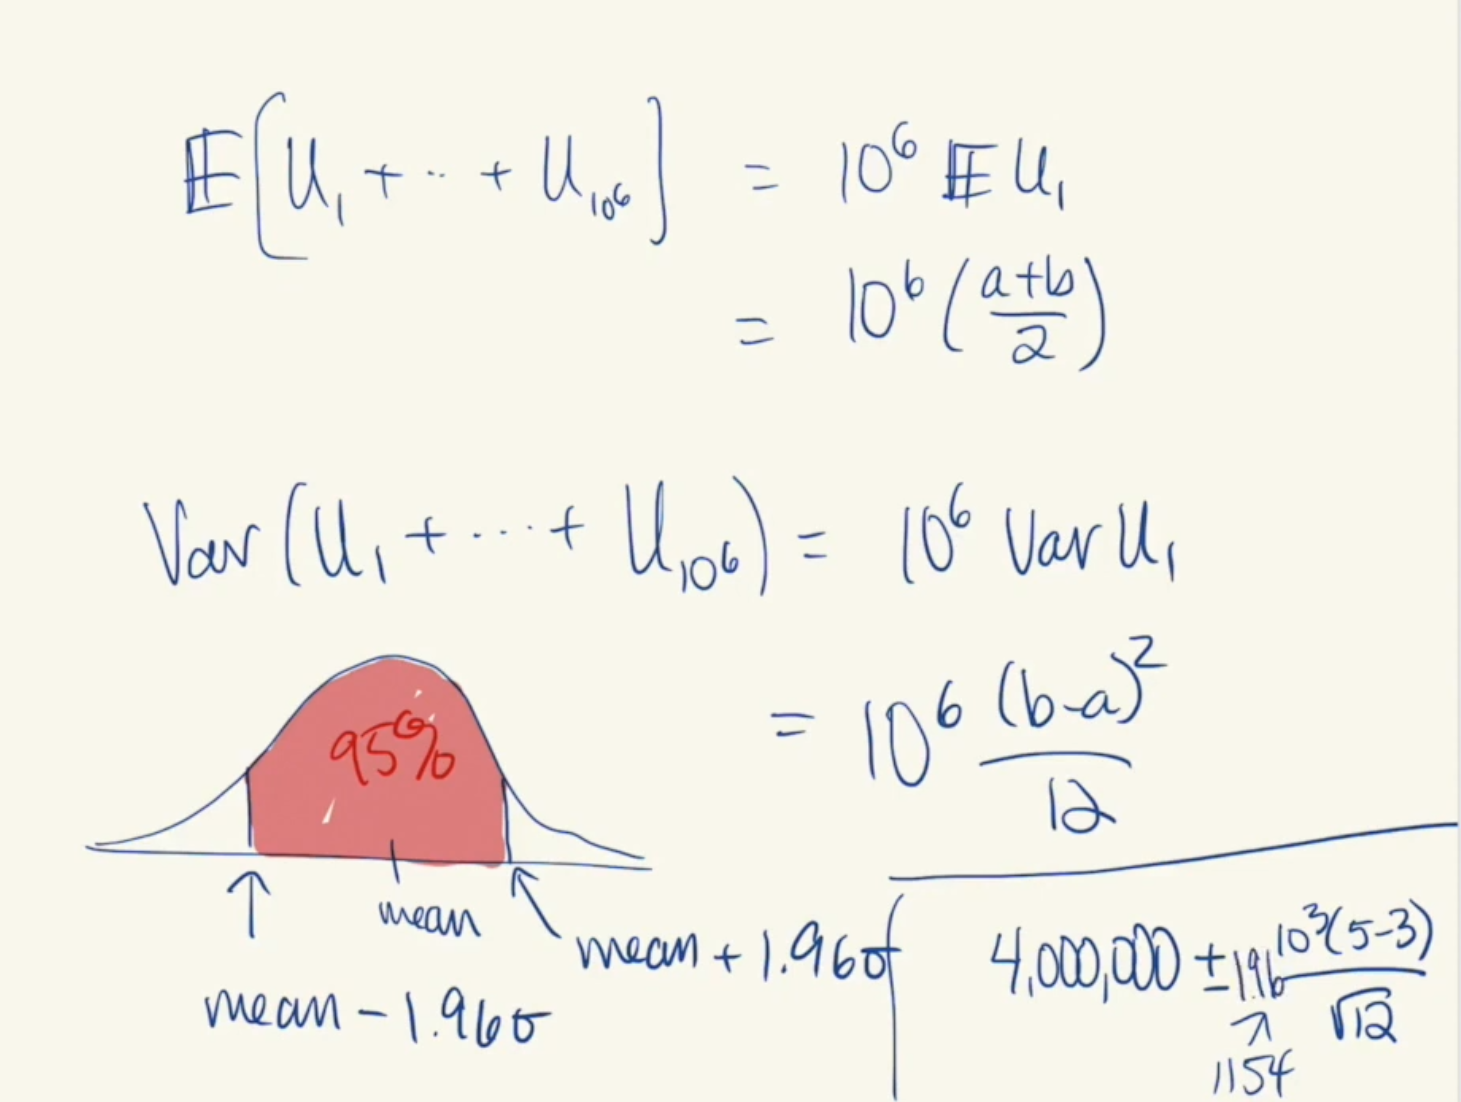 𝔼[U₁ + ·· + U₁₀⁶] = 10⁶ 𝔼 U₁
= 10⁶ ((a+b)/2)
Var (U₁ + ··· + U₁₀⁶) = 10⁶ Var U₁
= 10⁶ (b-a)²/12
95%
mean
mean + 1.96σ
mean - 1.96σ
4,000,000 ± 1.96 10³(5-3)/√12
1154